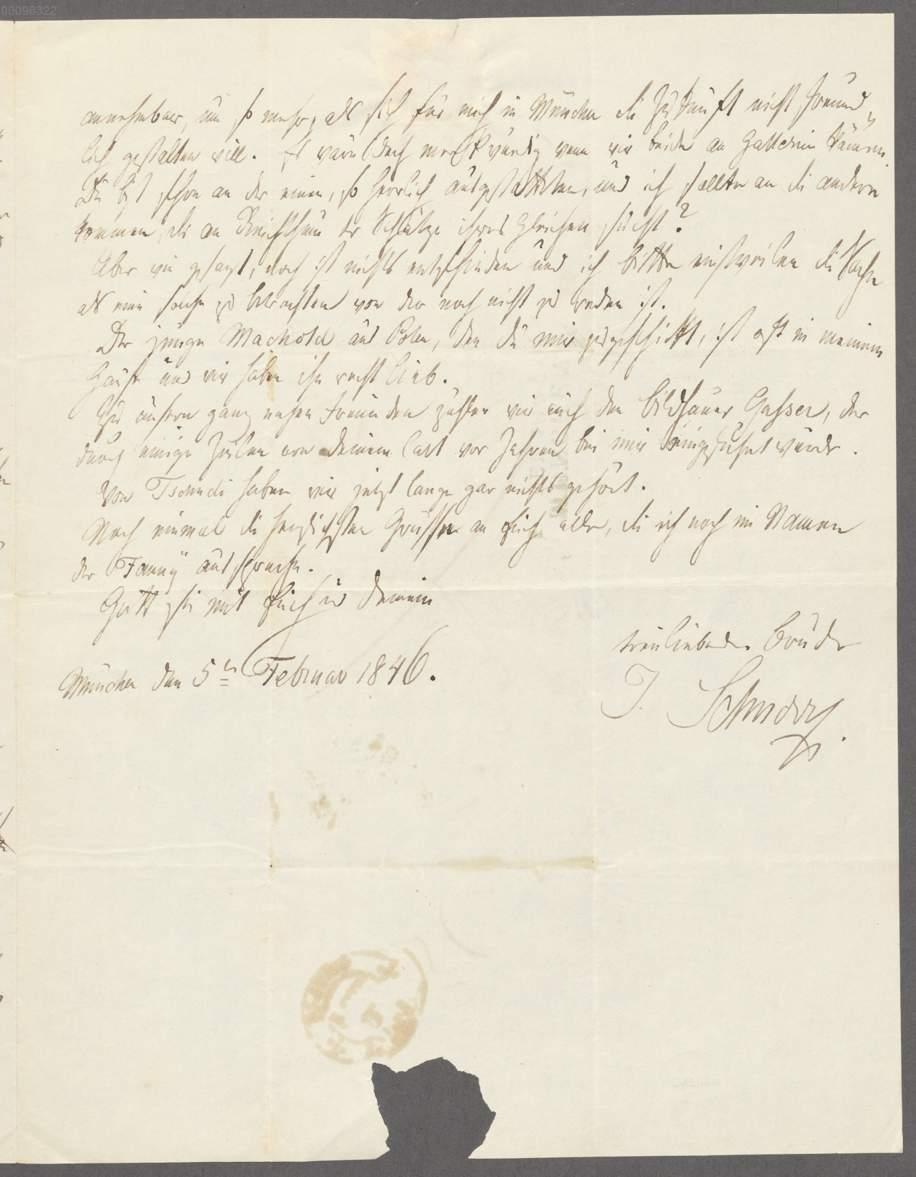 00098322
annehmbar, um so mehr, als sich für mich in München die Zukunft nicht freund-
lich gestalten will. Es wäre doch merkwürdig wenn wir beide an Gallerien kämen.
Du bist schon an der einen, so herrlich ausgestatteten, und ich sollte an die andere
kommen die an Reichthum der Schätze ihres Gleichen sucht?
Aber wie gesagt, noch ist nichts entschieden und ich bitte einstweilen die Sache
als eine solche zu betrachten von der noch nicht zu reden ist.
Der junge Machold aus, den du mir zugeschickt, ist oft in meinem
Hause und wir haben ihn recht lieb.
Zu unsern ganz nahen Freunden zählen wir auch den Bildhauer Gasser, der
durch einige Zeilen von Deinem Carl vor Jahren bei mir eingeführt wurde.
Von Tschudi haben wir jetzt lange gar nichts gehört.
Noch einmal die herzlichsten Grüsse an Euch alle, die ich noch im Namen
der Fanny ausspreche.
Gott sei mit Euch und Deinem
treuliebenden Bruder
München den 5ten Februar 1846.
J. Schnorr